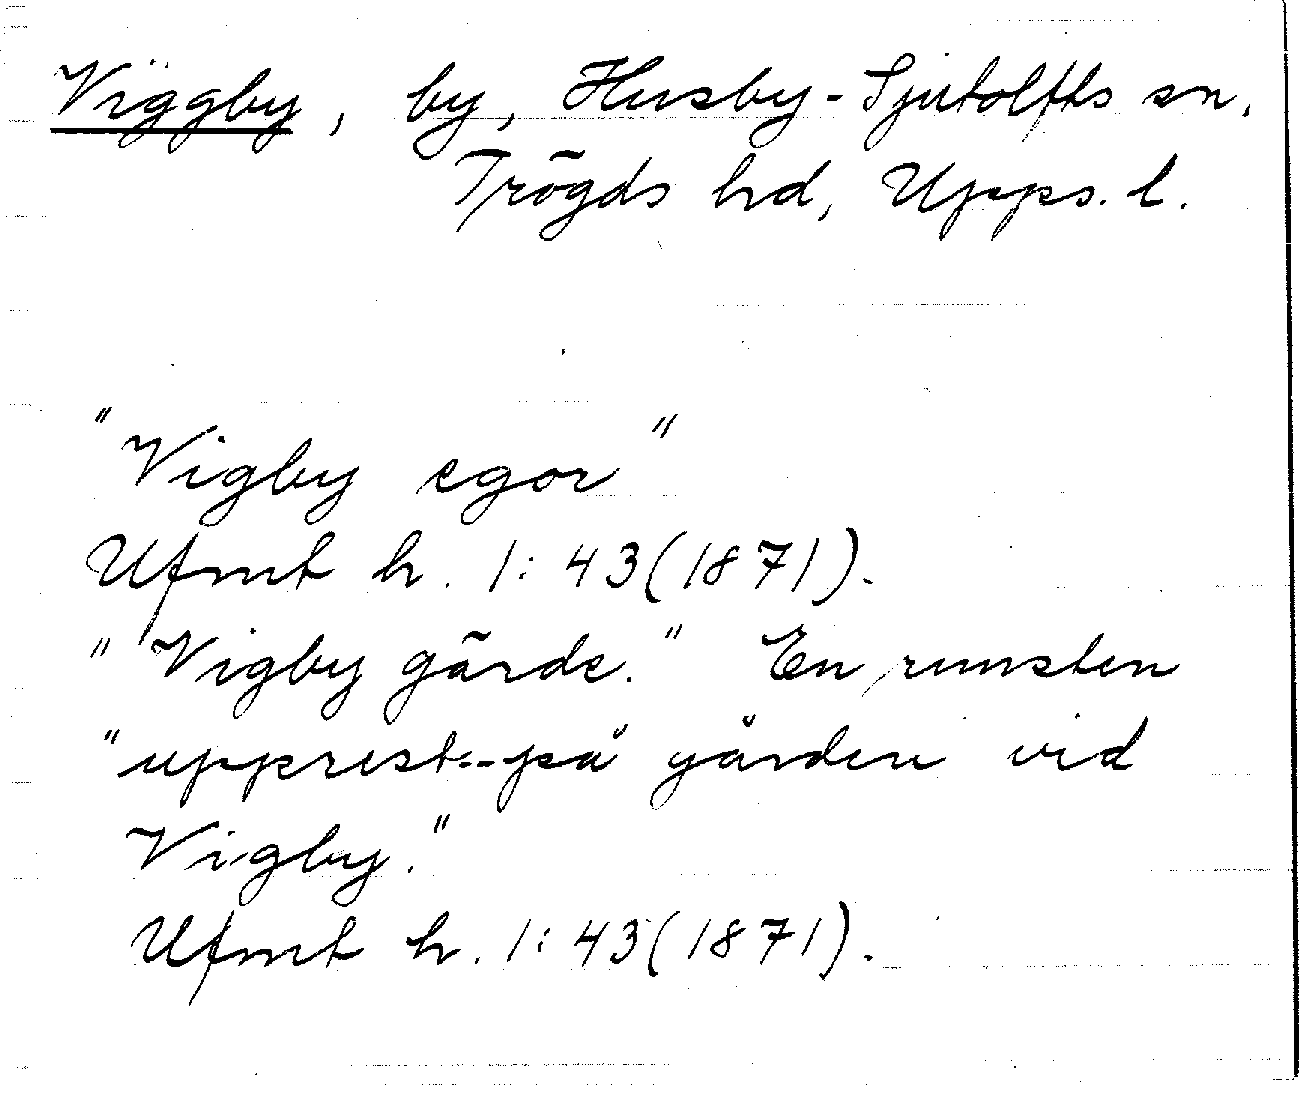 Viggby, by, Husby-Sjutolfts sn.
Trögds hd, Upps. l.
"Vigby egor"
Ufmt h. 1:43 (1871).
"Vigby gärde." En runsten
"upprest--på gården vid
Vigby."
Ufmt h. 1:43 (1871).